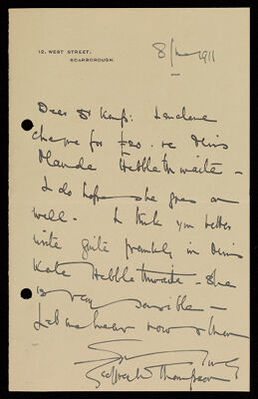 12, WEST STREET.
SCARBOROUGH.
1911
Dear Dr Kemp: I enclose
cheque for £20. re Miss
Maude Hebblethwaite –
I do hope she goes on
well. I think you better
write quite frankly to Miss
Kate Hebblethwaite – She
is very sensible –
Let me hear now & then
Geoffrey W Thompson